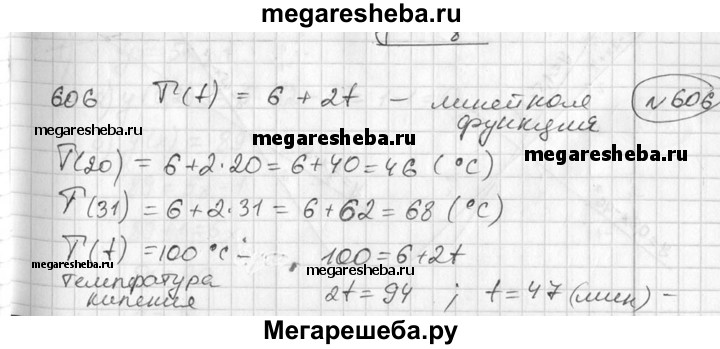 megaresheba.ru
606 T(t) = 6 + 2t - линейная функция №606
megaresheba.ru megaresheba.ru
T(20) = 6+2·20 = 6+40 = 46 (°C) megaresheba.ru
T(31) = 6+2·31 = 6+62 = 68 (°C)
megaresheba.ru
T(t) = 100 °C - 100 = 6+2t
megaresheba.ru megaresheba.ru
температура кипения 2t = 94 ; t = 47 (мин) -
megaresheba.ru
Мегарешеба.ру